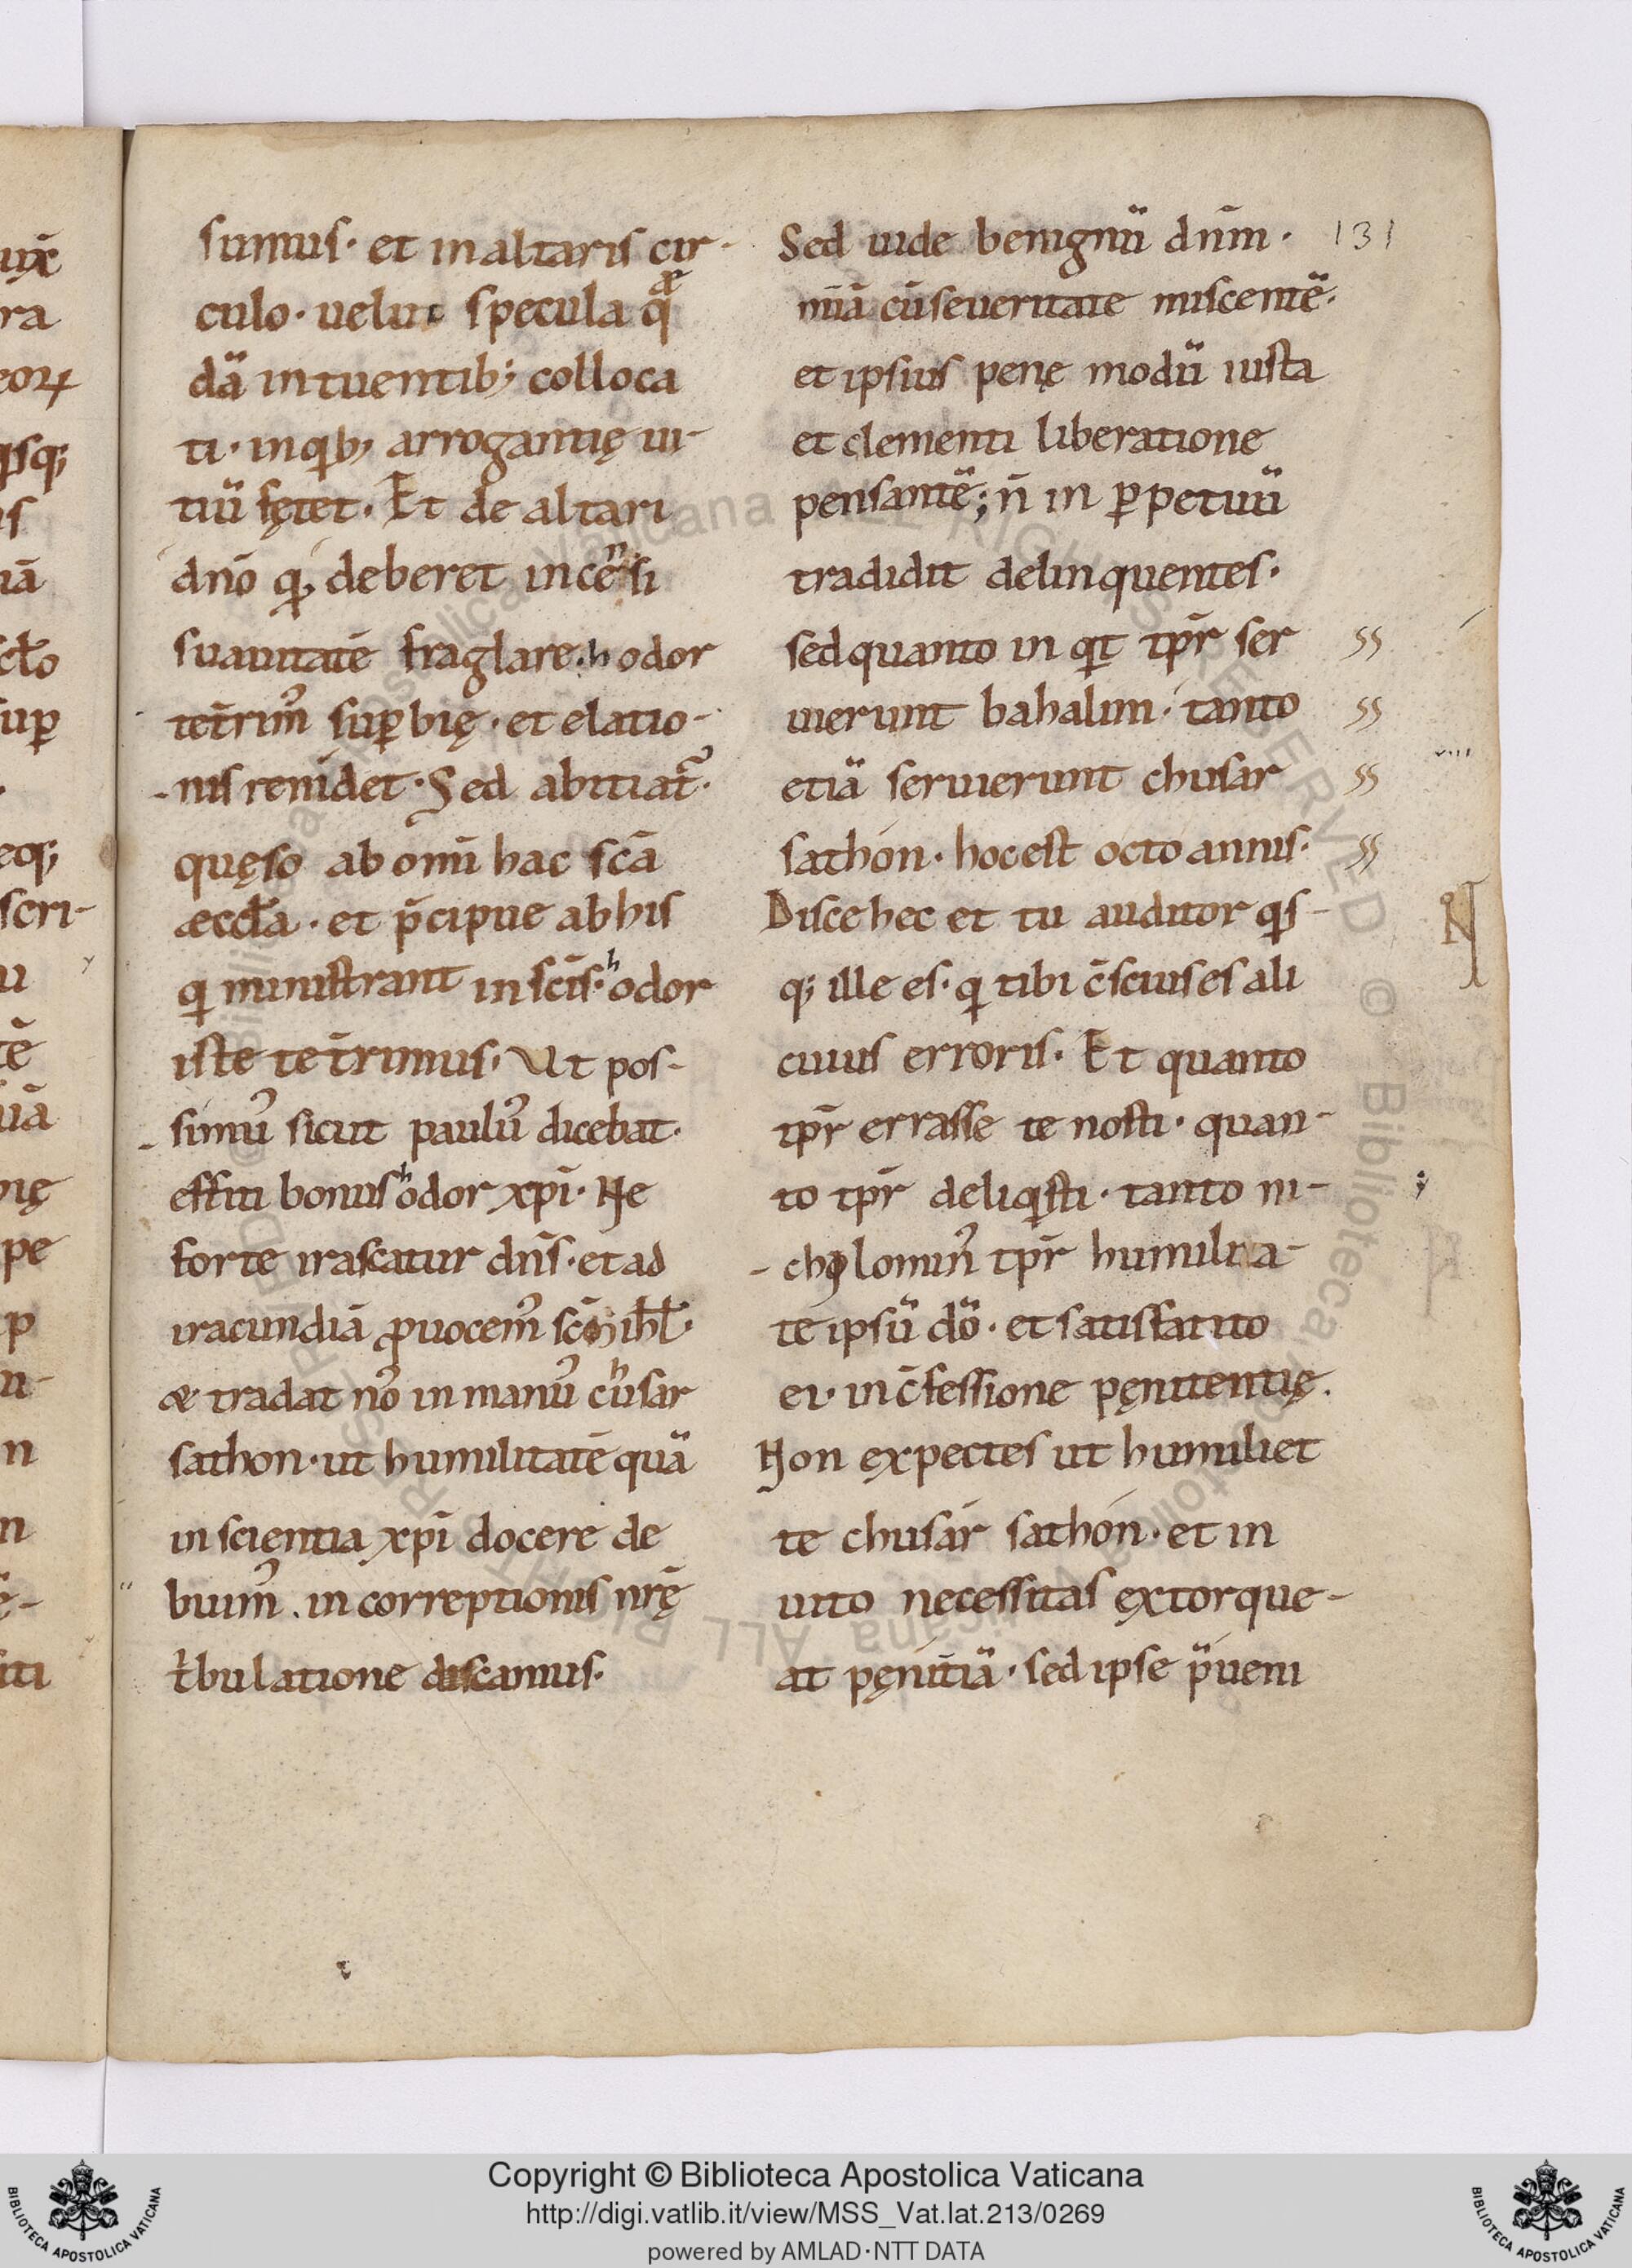 sumus· et in altaris cir-
culo· uelut specula q̃
dā intuentib; colloca
ti· in qib; arrogantię ui-
tiū fętet. Et de altari
dn̄o q̨ deberet incēnsi
suauitatē fraglare· hodor
tet̄rim᾽ sup̱bię· et elatio-
nis renidet· Sed abitiat᷑·
quęso ab om̄i hac scā
æccl̄a· et p̄cipue ab his
qi ministrant in scīs· hodor
iste tet̄rimus· Ut pos-
simu᾽ sicut paulu᾽ dicebat·
effiti bonus hodor xp̄i· Ne
forte irascatur dn̄s· et ad
iracundiā ꝓuocem᾽ scm̄ ihl̄·
& tradat no᾽ in manu᾽ chusar
sathon· ut humilitatē quā
in scientia xp̄i docere de
buim᾽. in correptionis nr̄ę
t̄bulatione discamus·
Sed uide benignū dn̄m· 131
mīā cū seueritate miscentē·
et ipsius penę modū iusta
et clementi liberatione
pensantē; n̄ in p̱petuū
tradidit delinquentes·
sed quanto in qit tp̄r ser
uierunt bahalim· tanto
etiā seruierunt chusar
sathon· hoc est octo annis·
Disce hec et tu auditor qis-
q; ille es· qi tibi c̄scius es ali
cuius erroris· Et quanto
tp̄r errasse te nosti· quan-
to tp̄r deliqisti· tanto ni-
chylomin᾽ tp̄r humilia-
te ipsū dō· et satisfatito
ei· in c̄fessione pęnitentię.
Non expectes ut humiliet
te chusar sathon· et in
uito necessitas extorque-
at pęnit̄iā· sed ipse p̄ueni
Copyright © Biblioteca Apostolica Vaticana
http://digi.vatlib.it/view/MSS_Vat.lat.213/0269
powered by AMLAD·NTT DATA